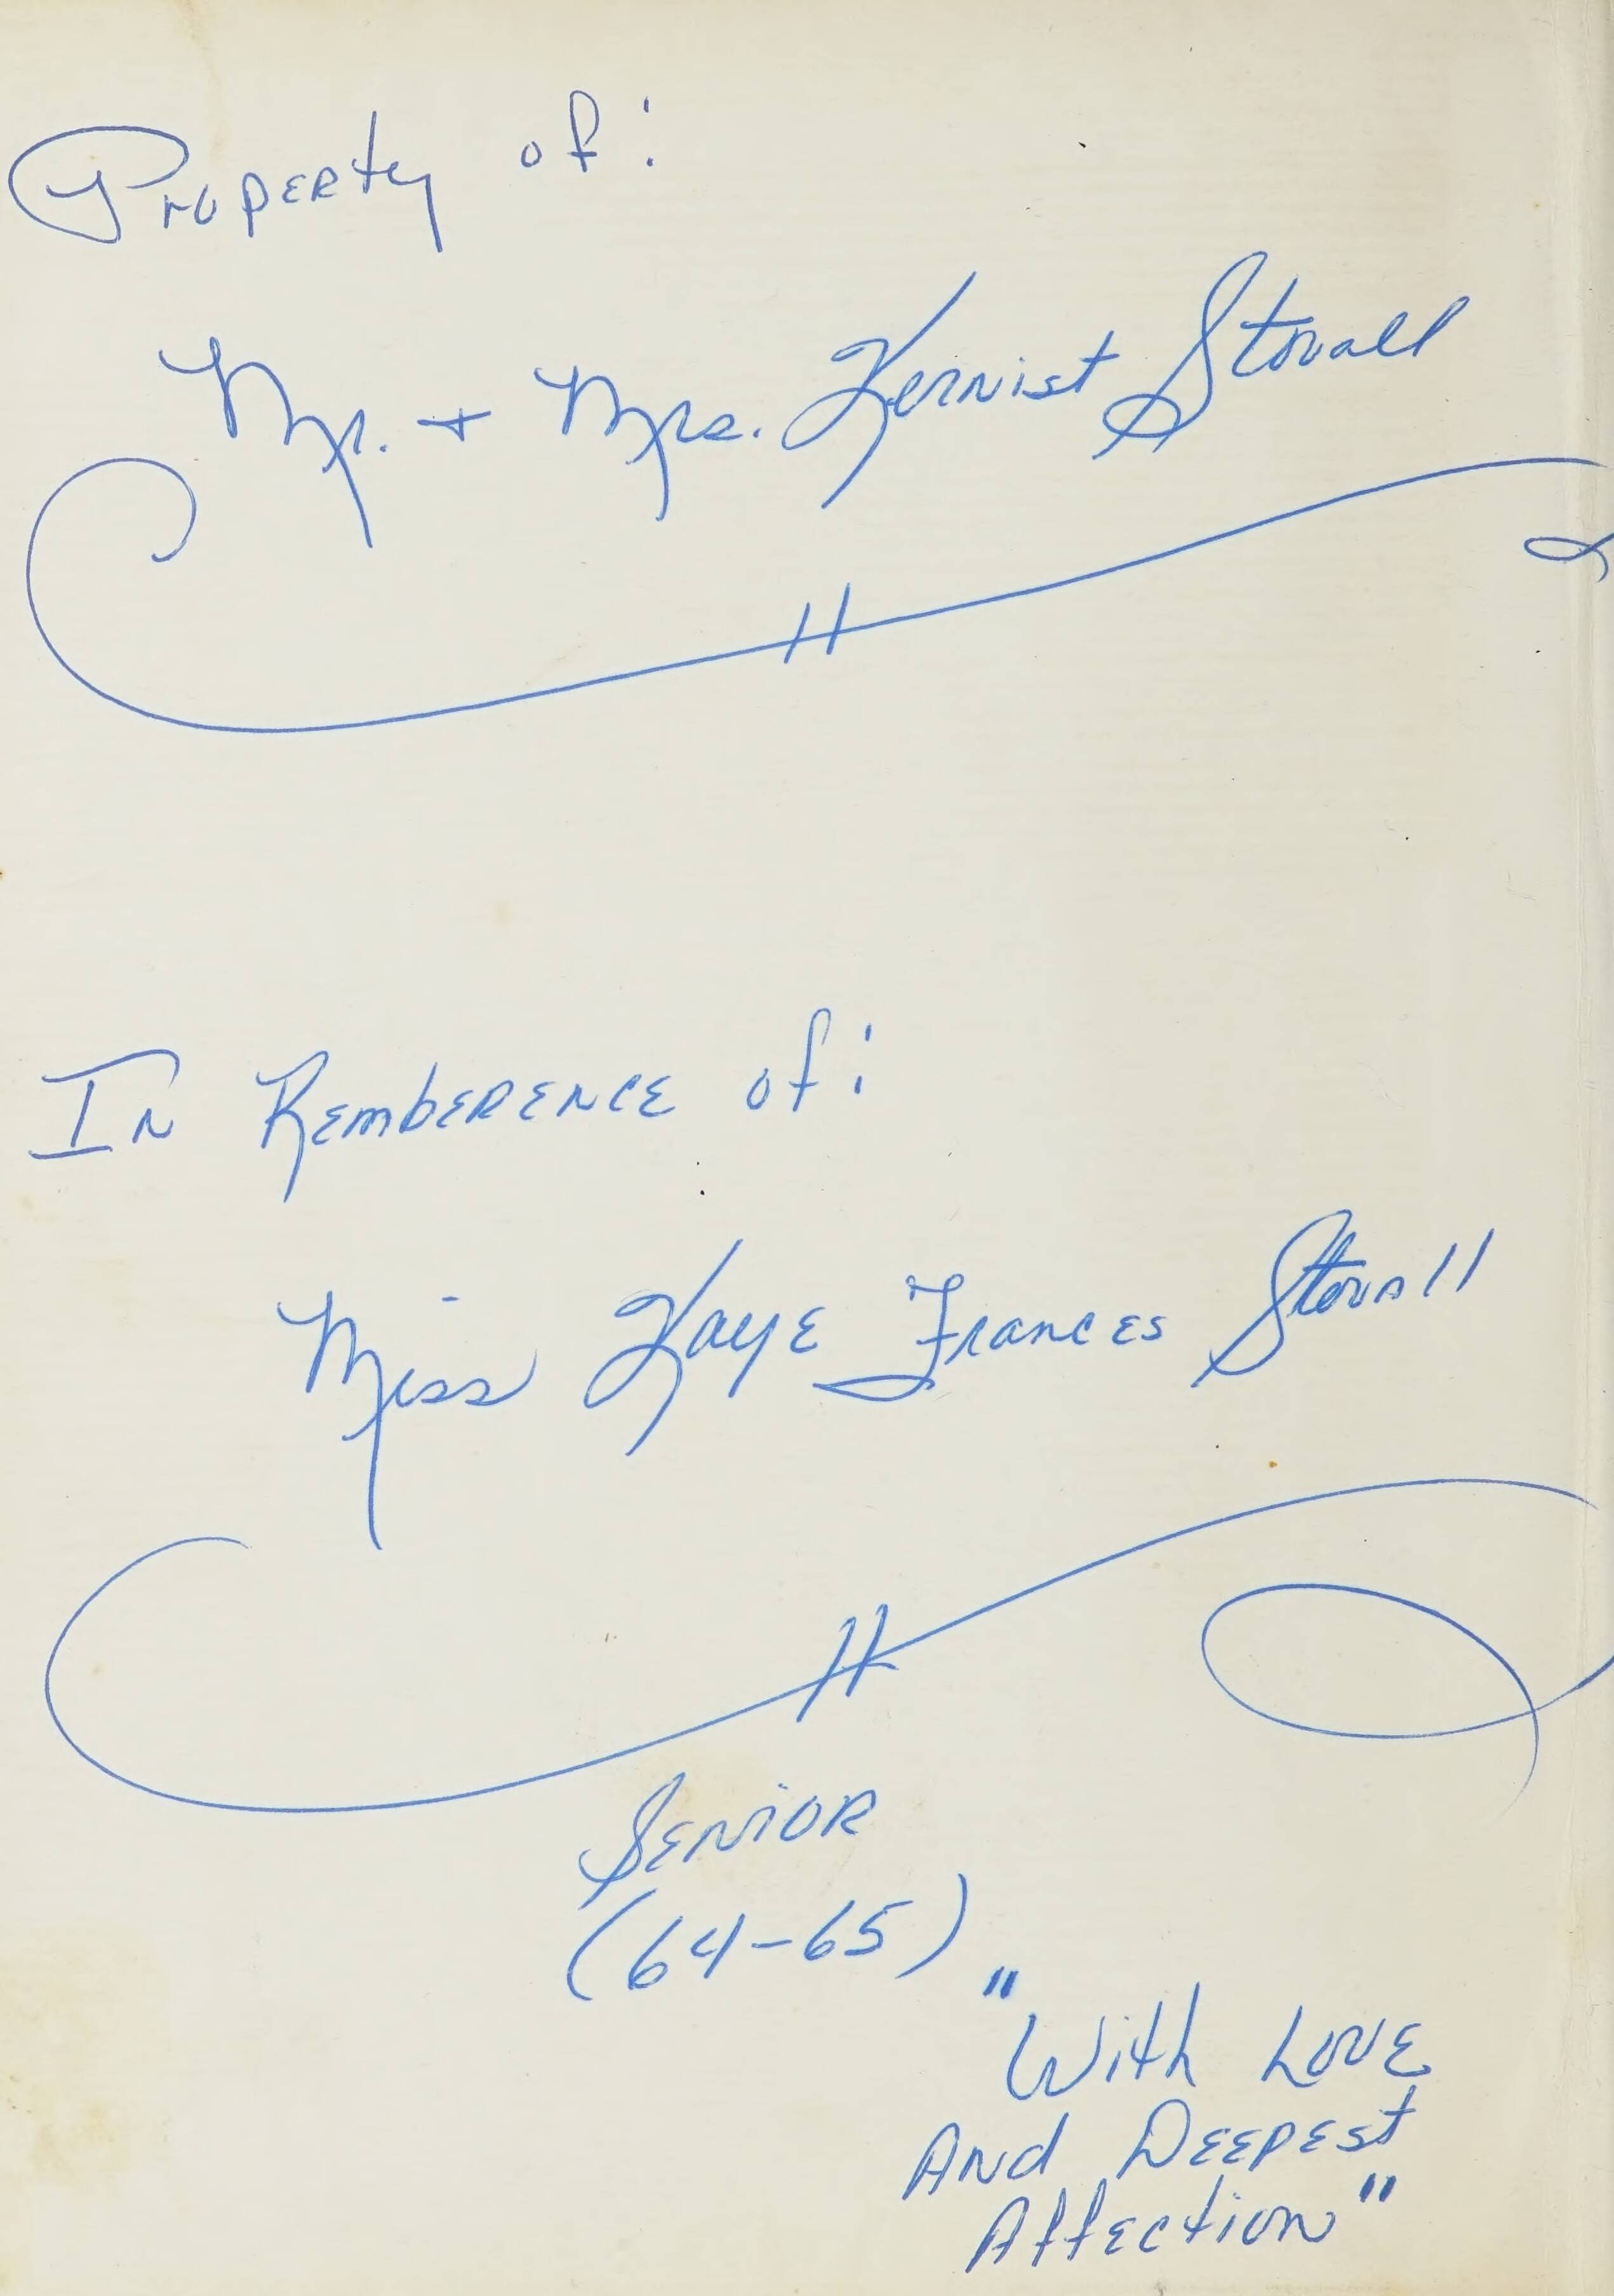 Property of:
Mr. + Mrs. Kernist Stovall
In Remberence of:
Miss Kaye Frances Stovall
Senior
(64-65)
"With Love
And Deepest
Affection"